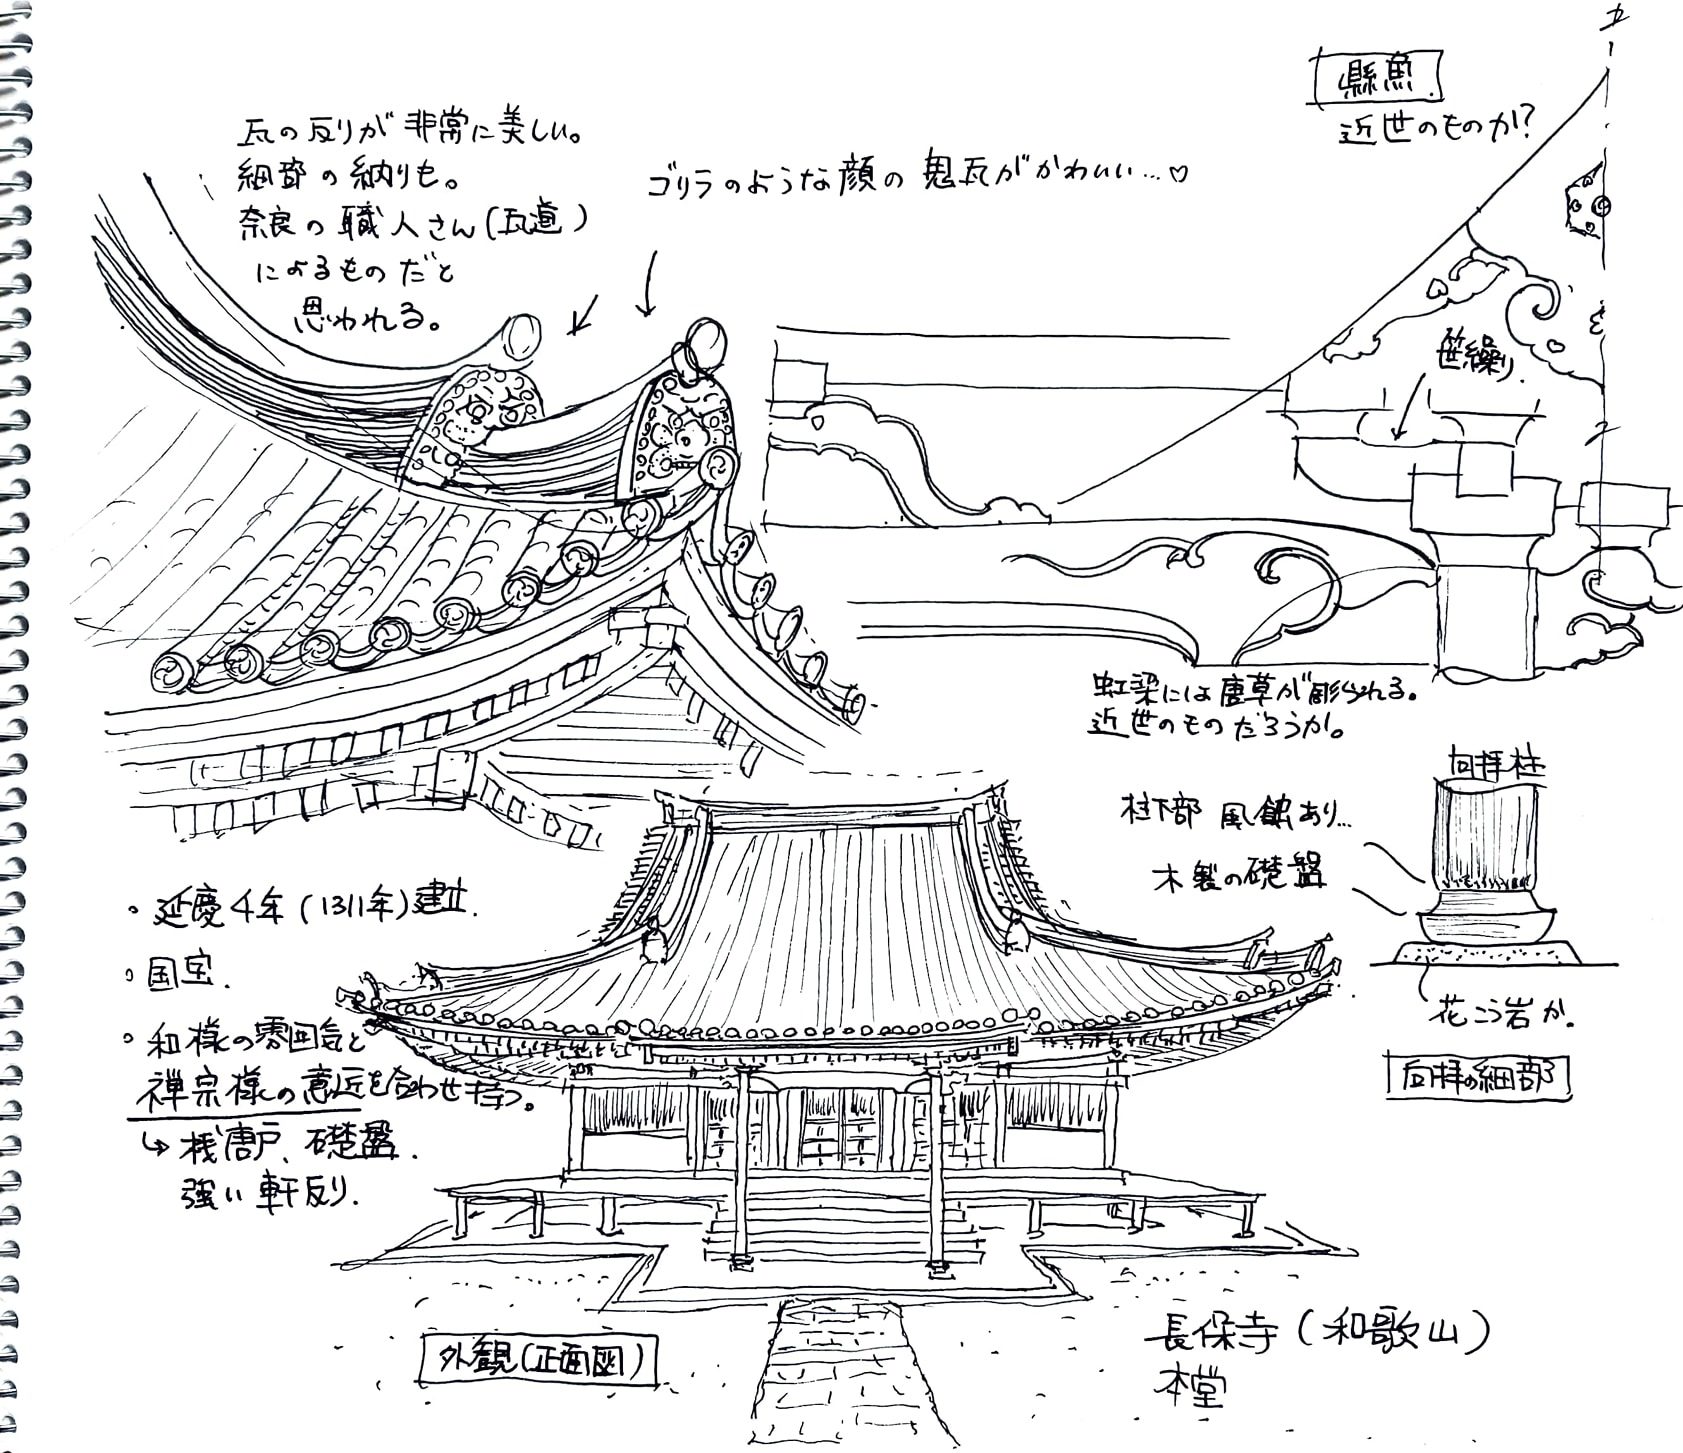 瓦の反りが非常に美しい。
細部の納りも。
奈良の職人さん(瓦道)
によるものだと
思われる。
ゴリラのような顔の鬼瓦がかわいい…♡
懸魚
近世のものか?
笹繰り
虹梁には唐草が彫られる。
近世のものだろうか。
向拝柱
柱下部 風蝕あり…
木製の礎盤
花こう岩か。
向拝の細部
・延慶4年(1311年)建立.
・国宝.
・和様の雰囲気と
禅宗様の意匠を合わせ持つ。
↳ 桟唐戸、礎盤.
強い軒反り.
外観(正面図)
長保寺(和歌山)
本堂